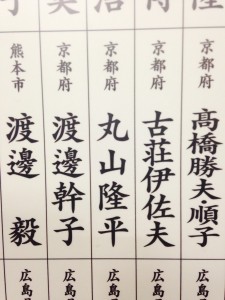 京都府 髙橋勝夫・順子
京都府 古荘伊佐夫
京都府 丸山隆平
京都府 渡邊幹子
熊本市 渡邊 毅
広島
広島
広島
広島
広島